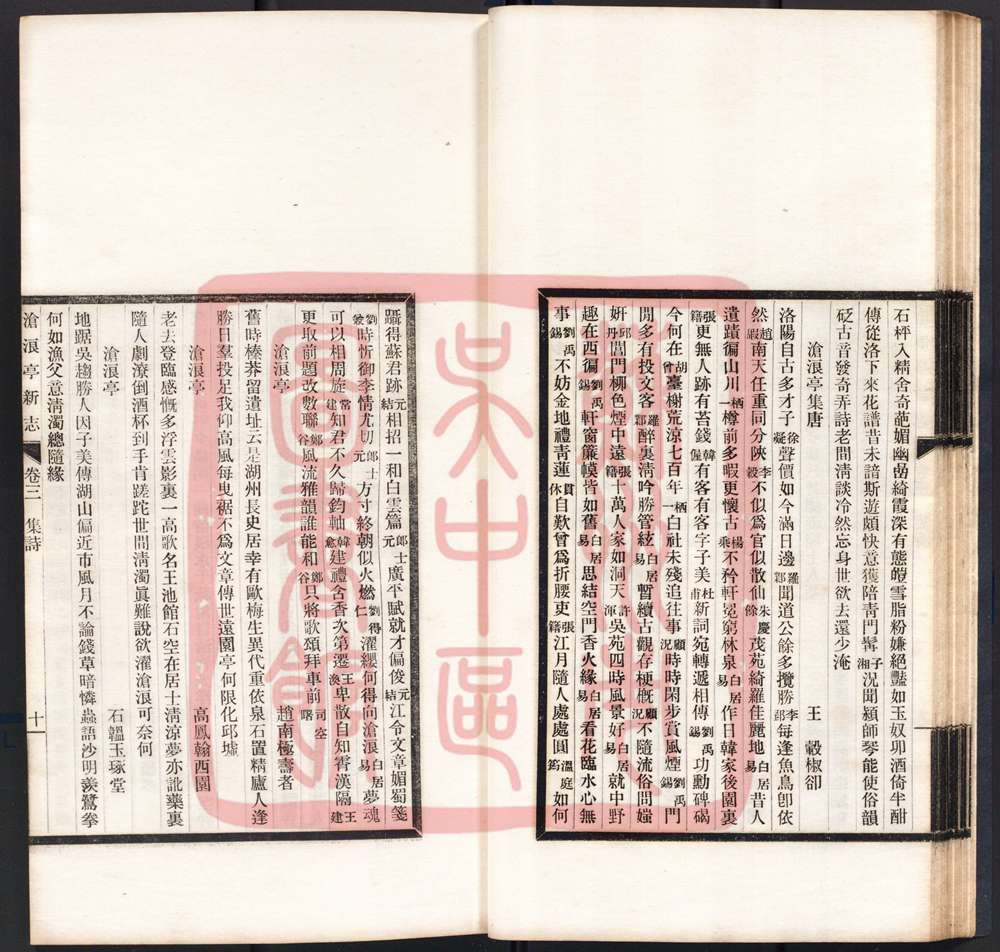 石枰入精舍奇葩媚幽嵒綺霞深有態皚雪脂粉嫌絕豔如玉奴卯酒倚半酣
傳從洛下來花譜昔未諳斯遊頗快意獲陪靑門髯子湘況聞潁師琴能使俗韻
砭古音發奇弄詩老閒淸談冷然忘身世欲去還少淹
滄浪亭集唐 王 轂椒卻
洛陽自古多才子徐凝聲價如今滿日邊羅鄴聞道公餘多攬勝李郢每逢魚鳥卽依
然趙嘏南天任重同分陝李毅不似爲官似散仙朱慶餘茂苑綺羅佳麗地白居易昔人
遺蹟徧山川一栖樽前多暇更懷古楊乘不矜軒冕窮林泉白居易作日韓家後園裏
張籍更無人跡有苔錢韓偓有客有客字子美杜甫新詞宛轉遞相傳劉禹錫功勳碑碣
今何在胡曾臺榭荒涼七百年栖一白社未殘追往事顧況時時閑步賞風煙劉禹錫門
閒多有投文客羅鄴醉裏淸吟勝管絃白居易暫續古觀存梗慨顧況不隨流俗問媸
妍邱丹閶門柳色煙中遠張籍十萬人家如洞天許渾吳苑四時風景好白居易就中野
趣在西徧劉禹錫軒窗簾幙皆如舊白居易思結空門香火緣白居易看花臨水心無
事劉禹錫不妨金地禮靑蓮貫休自歎曾爲折腰吏張籍江月隨人處處圓溫庭筠如何
躡得蘇君跡元結相招一和白雲篇郎士元廣平賦就才偏俊元結江令文章媚蜀箋
劉兼時忻御李情尤切郎士元方寸終朝似火燃劉得仁濯纓何得向滄浪白居易夢魂
可以相周旋常建知君不久歸鈞軸韓愈建禮含香次第遷王渙卑散自知霄漢隔王建
更取前題改數聯鄭谷風流雅韻誰能和鄭谷只將歌頌拜車前司空曙
滄浪亭 趙南極壽者
舊時榛莽留遺址云是湖州長史居幸有歐梅生異代重依泉石置精廬人逢
勝日羣投足我仰高風每曳裾不爲文章傳世遠園亭何限化邱墟
滄浪亭 高鳳翰西園
老去登臨感慨多浮雲影裏一高歌名王池館石空在居士淸涼夢亦訛藥裏
隨人劇潦倒酒杯到手肯蹉跎世間淸濁眞難說欲濯滄浪可奈何
滄浪亭 石韞玉琢堂
地踞吳趨勝人因子美傳湖山偏近市風月不論錢草暗憐蟲語沙明羨鷺拳
何如漁父意淸濁總隨緣
滄浪亭新志 卷三 集詩 十一
吳中區圖書館